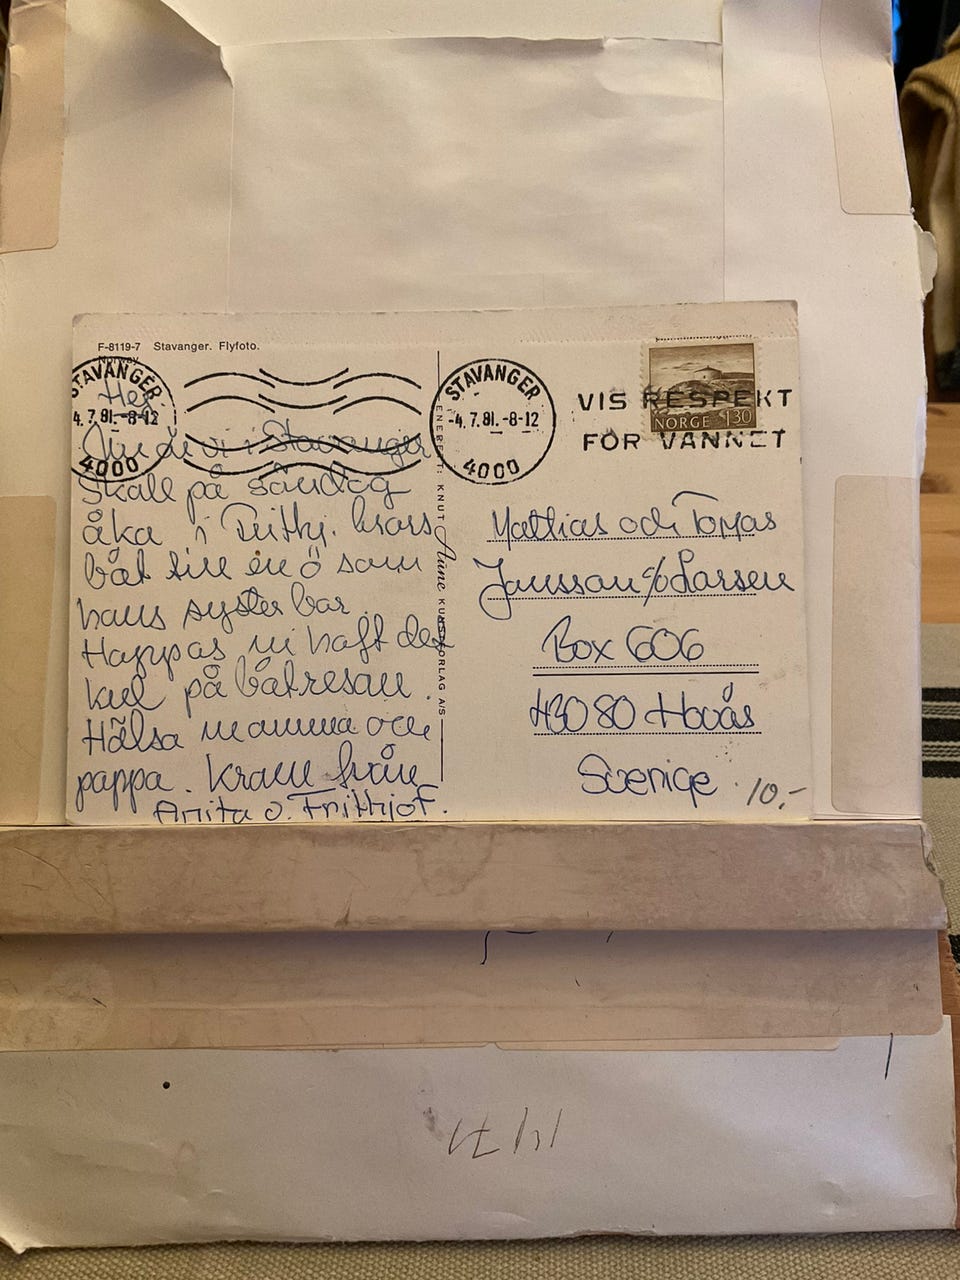 F-8119-7 Stavanger. Flyfoto.
Norway
STAVANGER
4.7.81.-8-12
4000
STAVANGER
-4.7.81.-8-12
4000
VIS RESPEKT
FOR VANNET
NORGE 130
Hej.
Nu är vi i Stavanger
Skall på söndag
åka i Frithj. brors
båt till en ö som
hans syster bor
Hoppas ni haft det
kul på båtresan.
Hälsa mamma och
pappa. Kram från
Anita o. Frithjof.
ENERETT: KNUT Aune KUNSTFORLAG A/S
Mattias och Tomas
Jansson c/o Larsen
Box 606
430 80 Hovås
Sverige
10,-